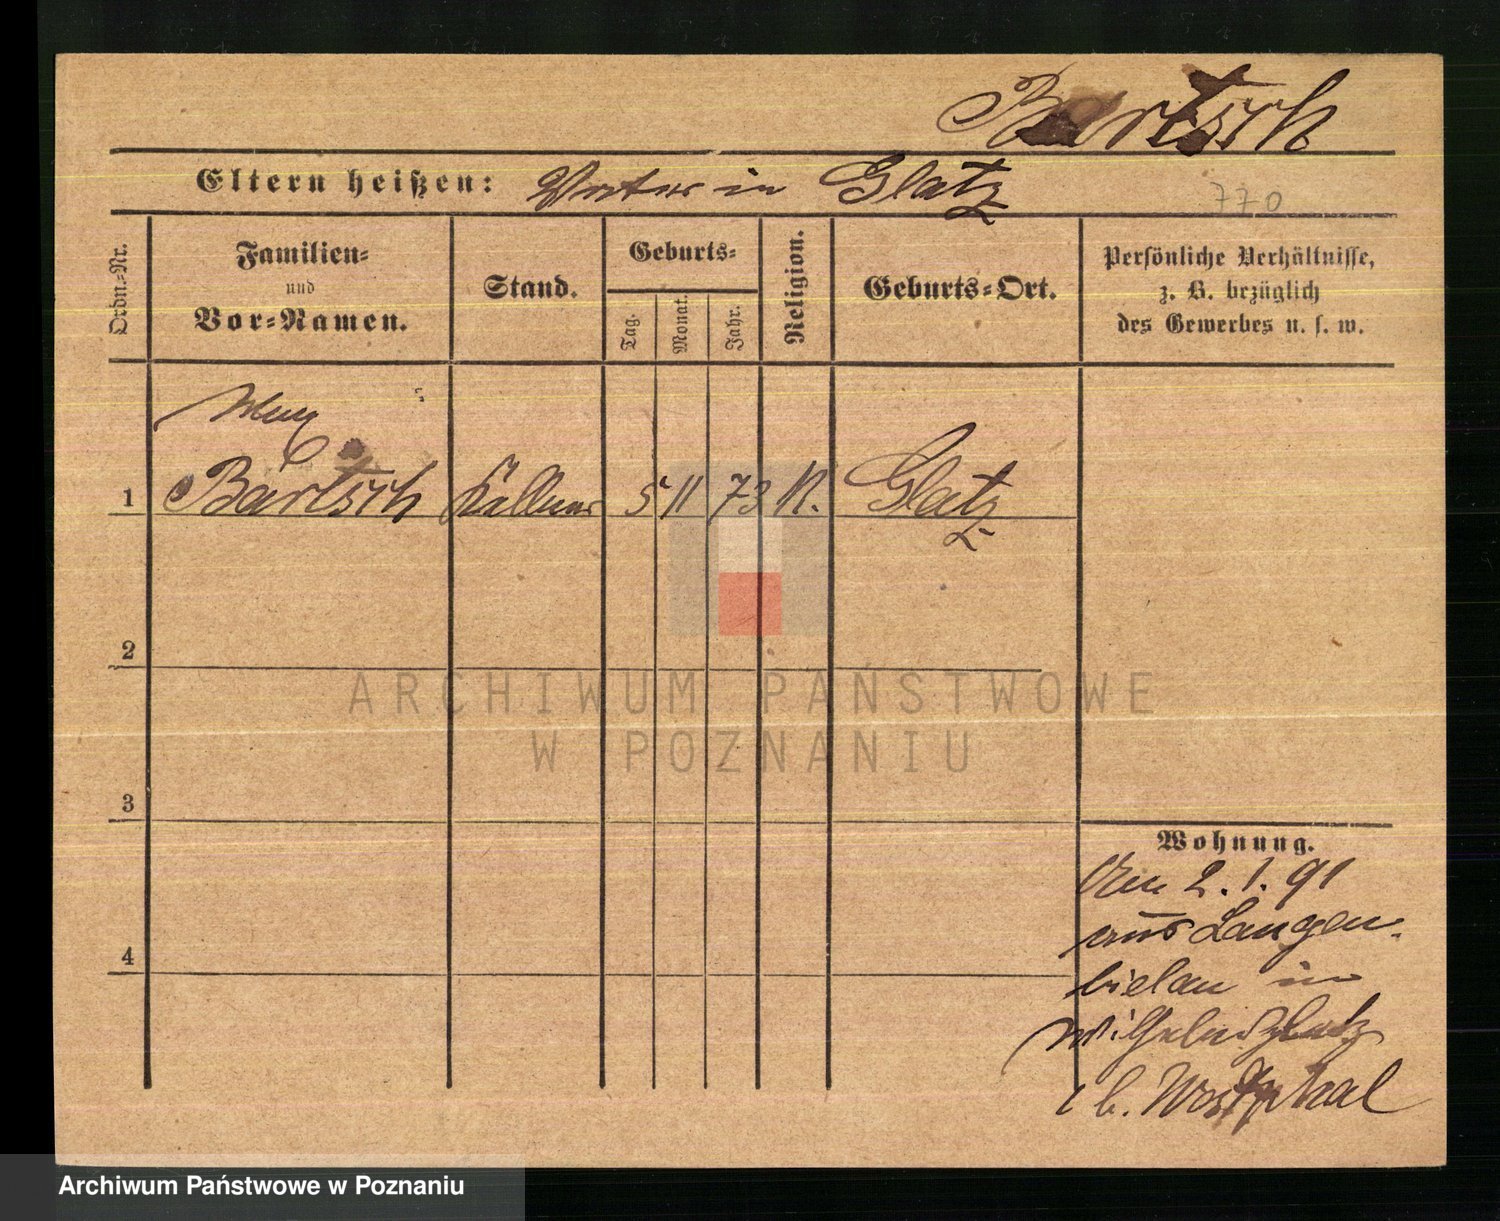 Bartsch
Eltern heißen: Vater in Glatz
770
Ordn.-Nr.
Familien-
und
Vor-Namen.
Stand.
Geburts-
Tag.
Monat.
Jahr.
Religion.
Geburts-Ort.
Persönliche Verhältnisse,
z. B. bezüglich
des Gewerbes u. s. w.
Max
1 Bartsch Kellner 5 11 73 K. Glatz
2
3
4
ARCHIWUM PAŃSTWOWE
W POZNANIU
Wohnung.
Am 2.1.91
aus Langen-
bielau in
Wilhelmsplatz
b. Westphal
Archiwum Państwowe w Poznaniu